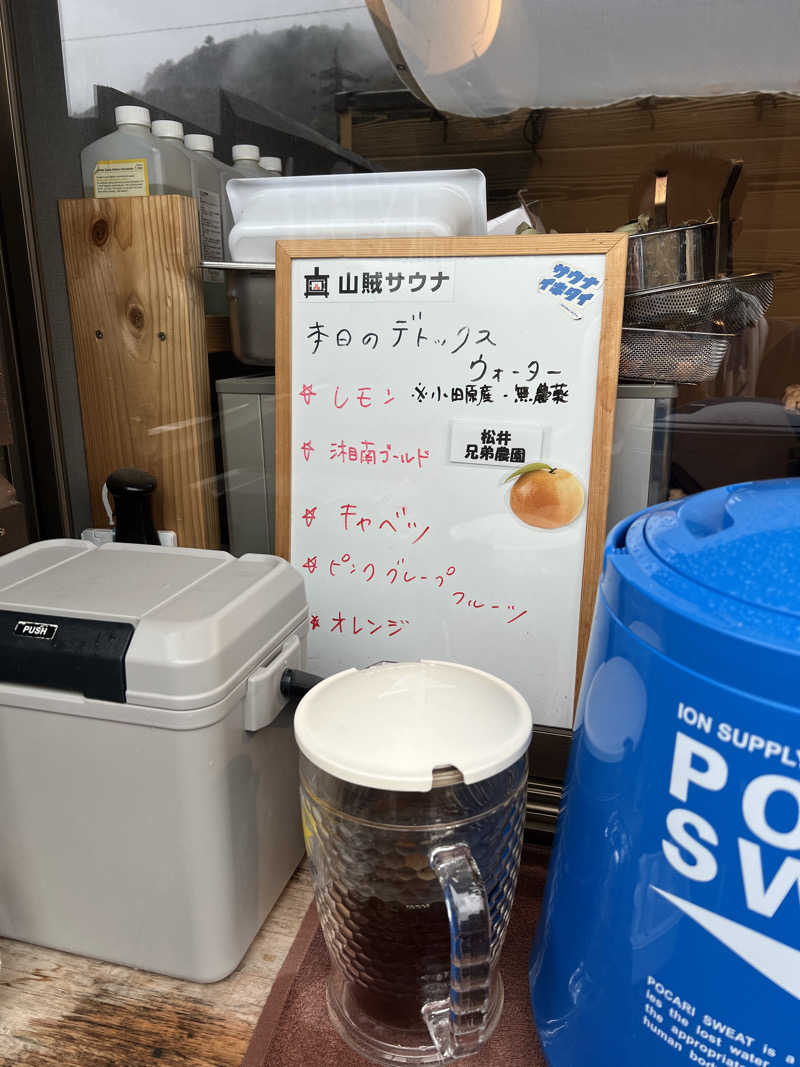 山賊サウナ
サウナ
イキタイ
本日のデトックス
ウォーター
☆ レモン ※小田原産・無農薬
☆ 湘南ゴールド
松井
兄弟農園
☆ キャベツ
☆ ピンクグレープ
フルーツ
☆ オレンジ
PUSH
ION SUPPLY
PO
SW
POCARI SWEAT is a
ies the lost water
the appropriate
human bod